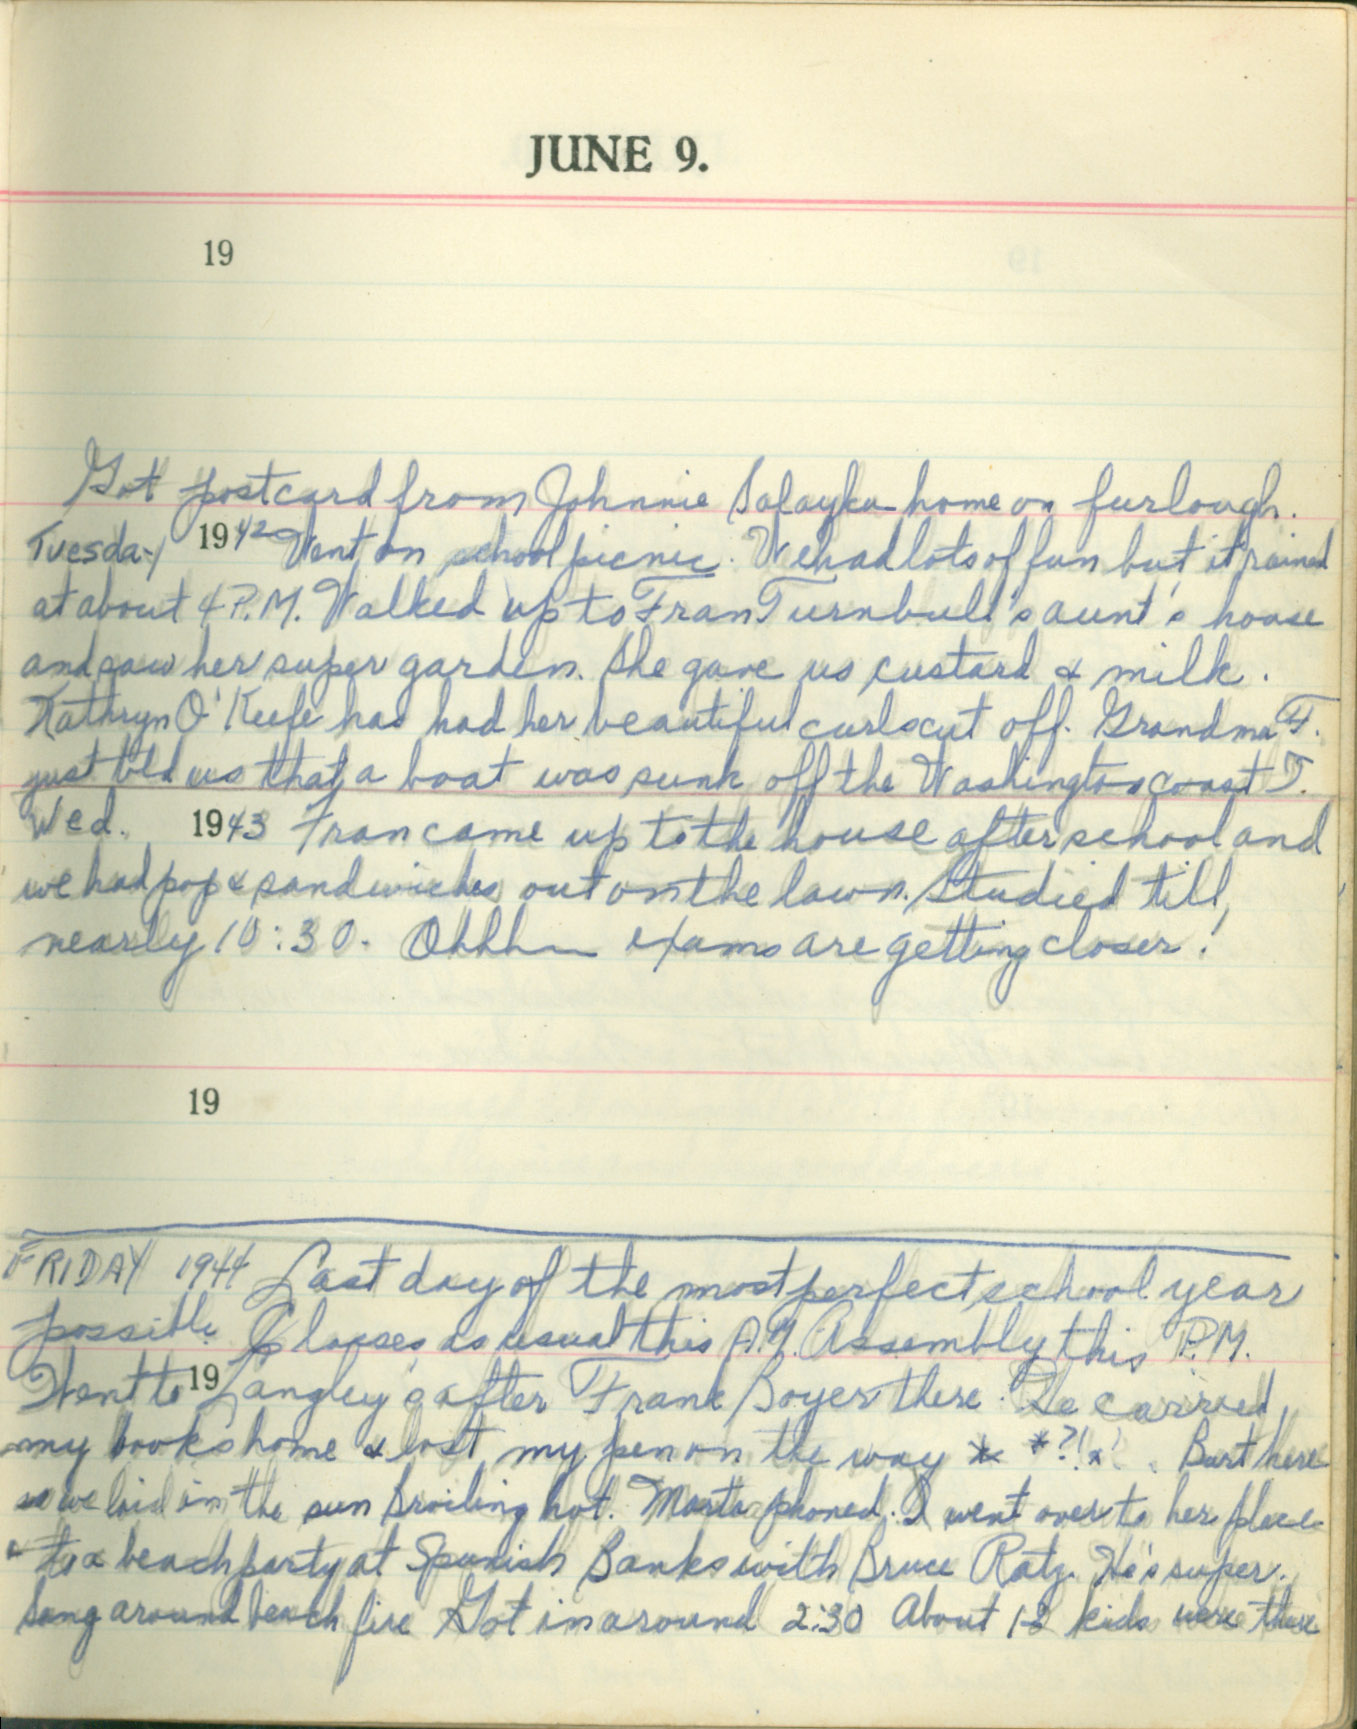 JUNE 9.
19
Got postcard from Johnnie home on furlough.
Tuesday 1942 Went on school picnic. We had lots of fun but it rained
at about 4 P.M. Walked up to Fran Turnbull's aunt's house
and saw her super garden. She gave us custard & milk.
Kathryn O'Keefe has had her beautiful curls cut off. Grandma F.
just told us that a boat was sunk off the Washington coast T.
Wed. 1943 Fran came up to the house after school and
we had pop & sandwiches out on the lawn. Studied till
nearly 10:30. Ohhhh exams are getting closer!
19
FRIDAY 1944 Last day of the most perfect school year
possible. Classes as usual this A.M. Assembly this P.M.
Went to 19 Langley's after Frank Boyer there. He carried
my books home & lost my pen on the way * *?!*! . Burt here
so we laid in the sun broiling hot. phoned. I went over to her place
& to a beach party at Spanish Banks with Bruce Ratz. He's super.
Sang around beach fire Got in around 2:30 About 12 kids were there